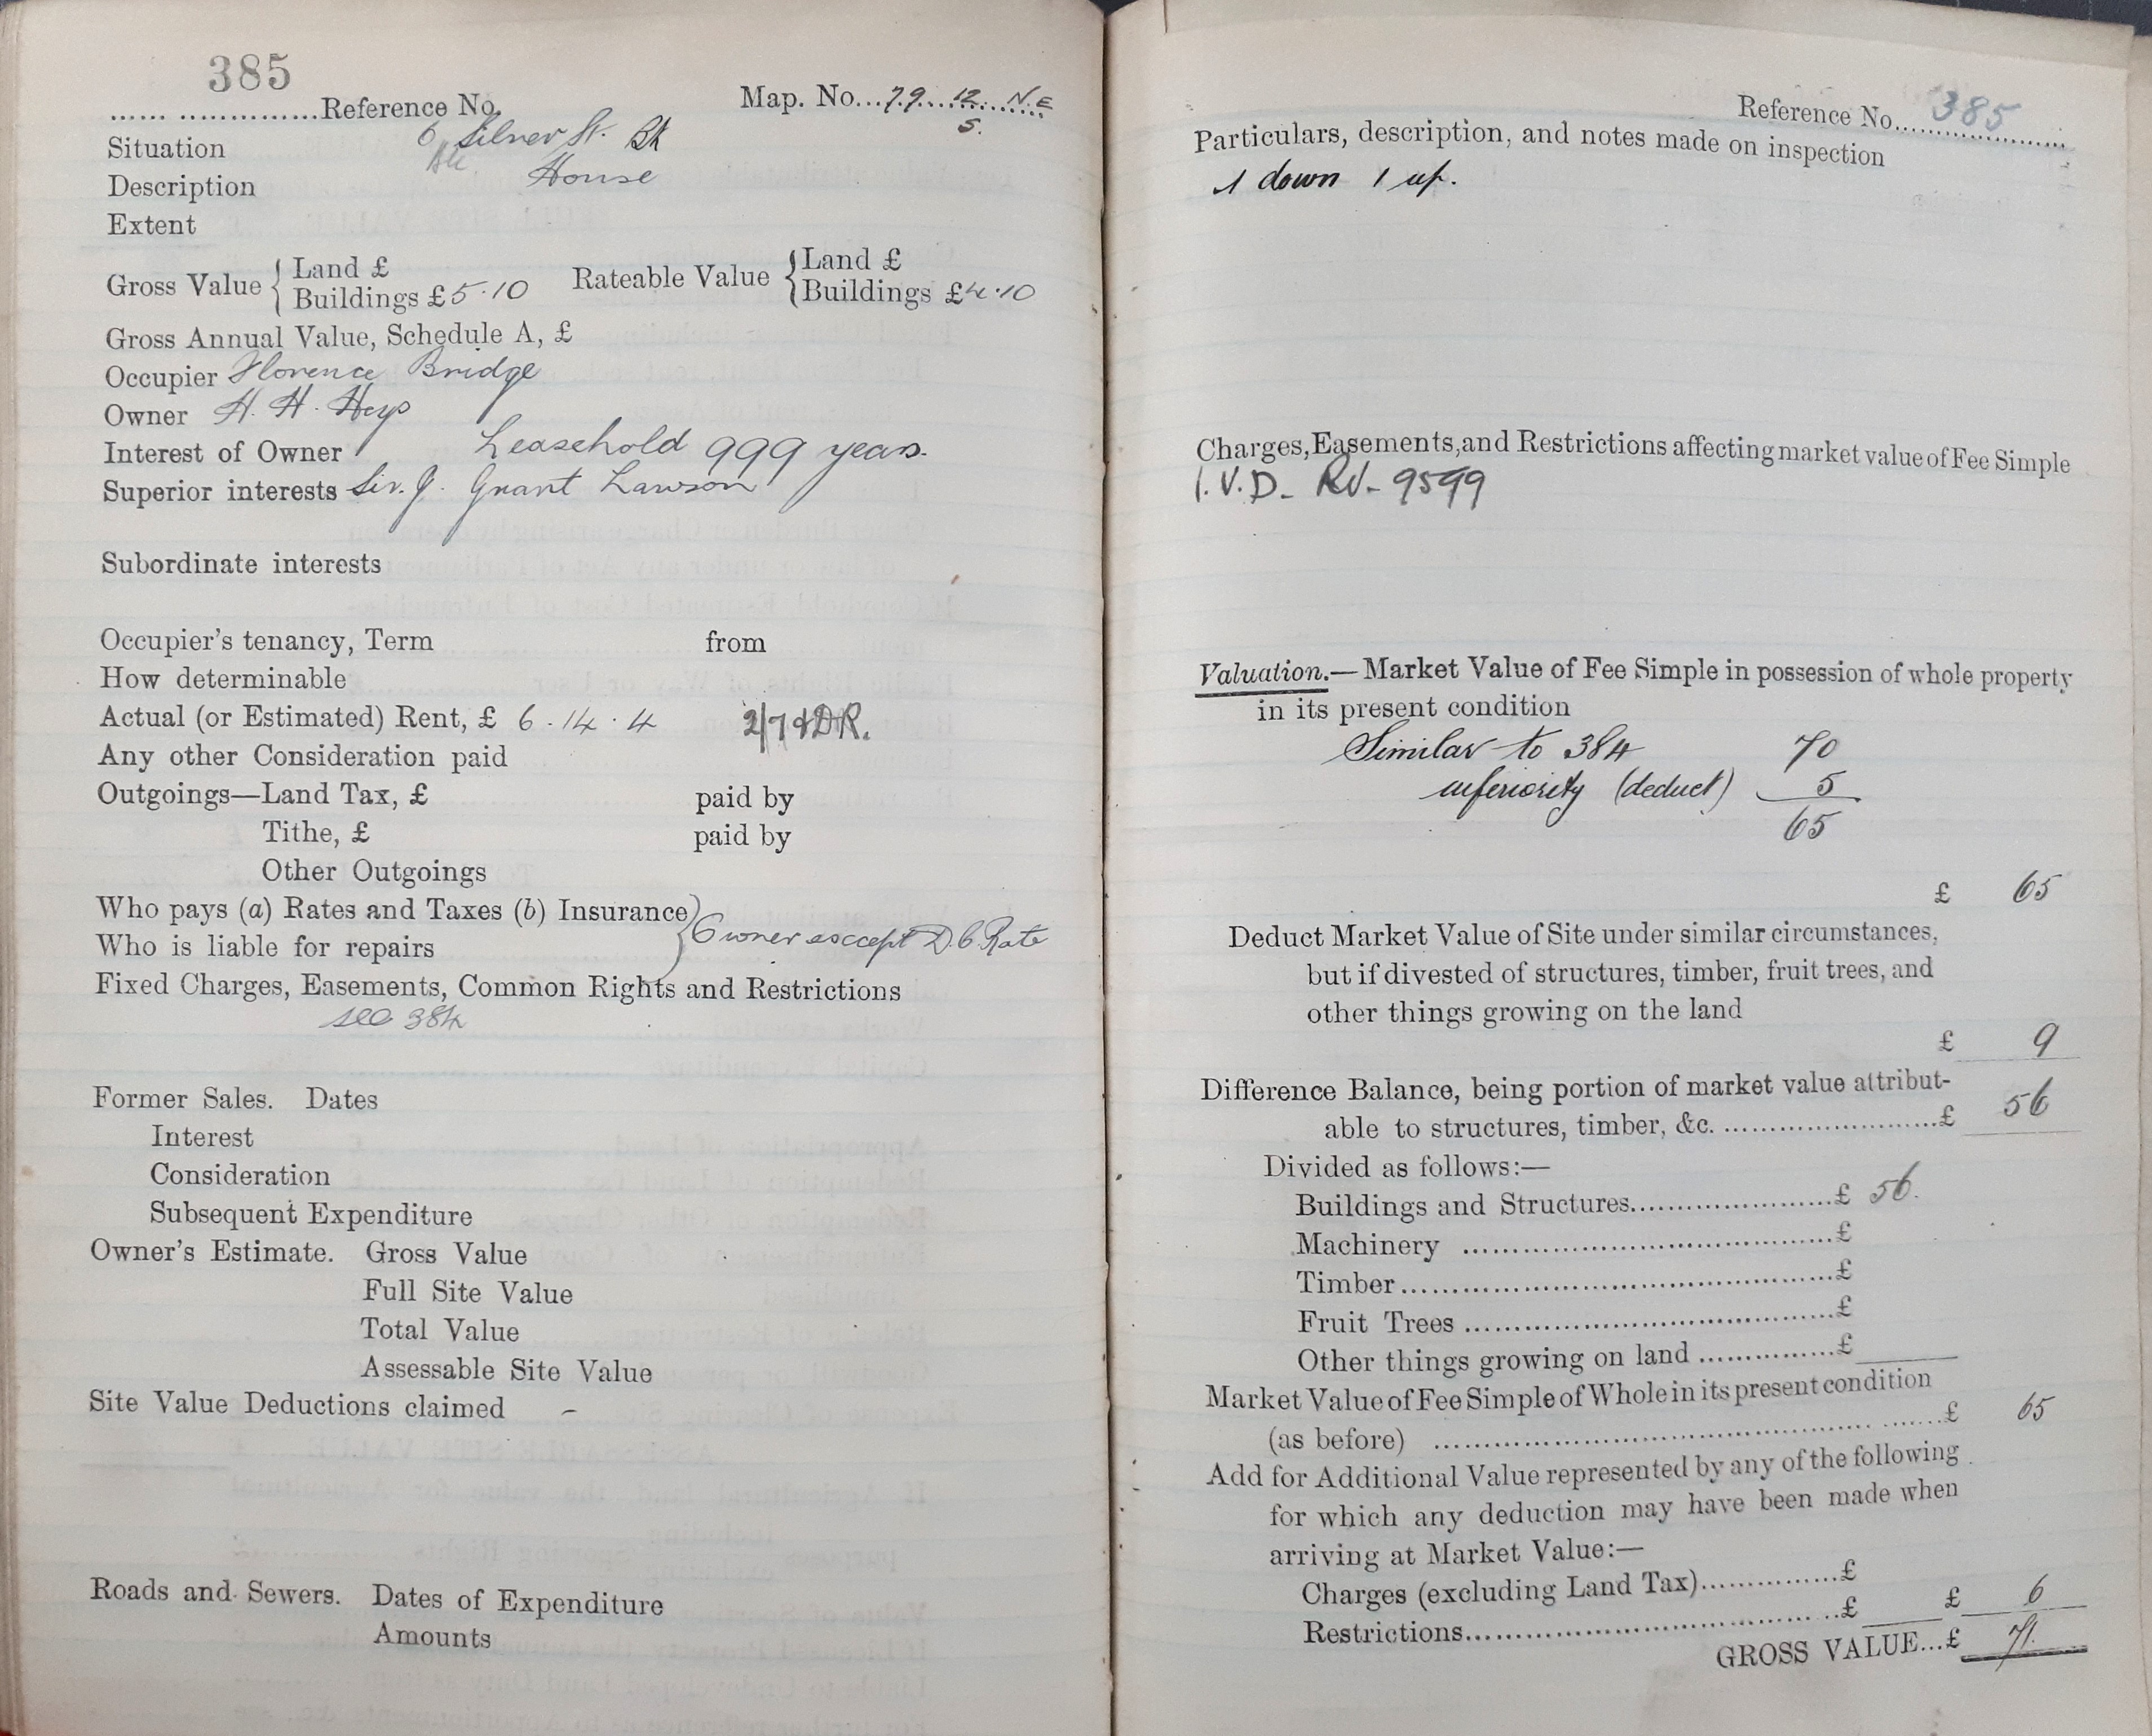 385
Reference No.
Map. No. 79. 12. N.E
5.
Situation 6 Silver St. Bk
Description House
Extent
Gross Value { Land £
Buildings £5.10
Rateable Value { Land £
Buildings £4.10
Gross Annual Value, Schedule A, £
Occupier Florence Bridge
Owner H. H. Heys
Interest of Owner Leasehold 999 years.
Superior interests Sir. J. Grant Lawson
Subordinate interests
Occupier's tenancy, Term from
How determinable
Actual (or Estimated) Rent, £ 6.14.4 2/7 & DR.
Any other Consideration paid
Outgoings—Land Tax, £ paid by
Tithe, £ paid by
Other Outgoings
Who pays (a) Rates and Taxes (b) Insurance }
Who is liable for repairs } Owner except D.C. Rate
Fixed Charges, Easements, Common Rights and Restrictions
see 384
Former Sales. Dates
Interest
Consideration
Subsequent Expenditure
Owner's Estimate. Gross Value
Full Site Value
Total Value
Assessable Site Value
Site Value Deductions claimed –
Roads and Sewers. Dates of Expenditure
Amounts
Reference No. 385
Particulars, description, and notes made on inspection
1 down 1 up.
Charges, Easements, and Restrictions affecting market value of Fee Simple
I.V.D. RV. 9599
Valuation.—Market Value of Fee Simple in possession of whole property
in its present condition
Similar to 384 70
inferiority (deduct) 5
65
£ 65
Deduct Market Value of Site under similar circumstances,
but if divested of structures, timber, fruit trees, and
other things growing on the land
£ 9
Difference Balance, being portion of market value attribut-
able to structures, timber, &c. £ 56
Divided as follows:—
Buildings and Structures £ 56.
Machinery £
Timber £
Fruit Trees £
Other things growing on land £
Market Value of Fee Simple of Whole in its present condition
(as before) £ 65
Add for Additional Value represented by any of the following
for which any deduction may have been made when
arriving at Market Value:—
Charges (excluding Land Tax) £
Restrictions £ £ 6
GROSS VALUE...£ 71.